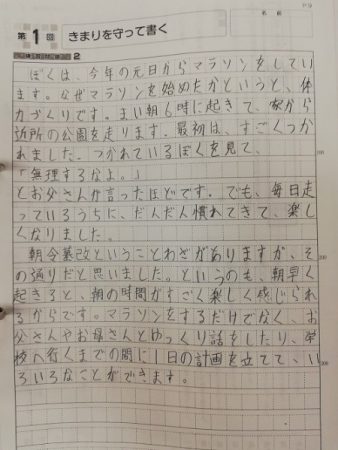 P.9
名前
第1回 きまりを守って書く
2
ぼくは、今年の元日からマラソンをしてい
ます。なぜマラソンを始めたかというと、体
力づくりです。まい朝6時に起きて、家から
近所の公園を走ります。最初は、すごくつか
れました。つかれているぼくを見て、
「無理するなよ。」
とお父さんが言ったほどです。でも、毎日走
っているうちに、だんだん慣れてきて、楽し
くなりました。
朝令暮改ということわざがありますが、そ
の通りだと思いました。というのも、朝早く
起きると、朝の時間がすごく楽しく感じられ
るからです。マラソンをするだけでなく、お
父さんやお母さんとゆっくり話をしたり、学
校へ行くまでの間に1日の計画を立てて、い
ろいろなことができます。